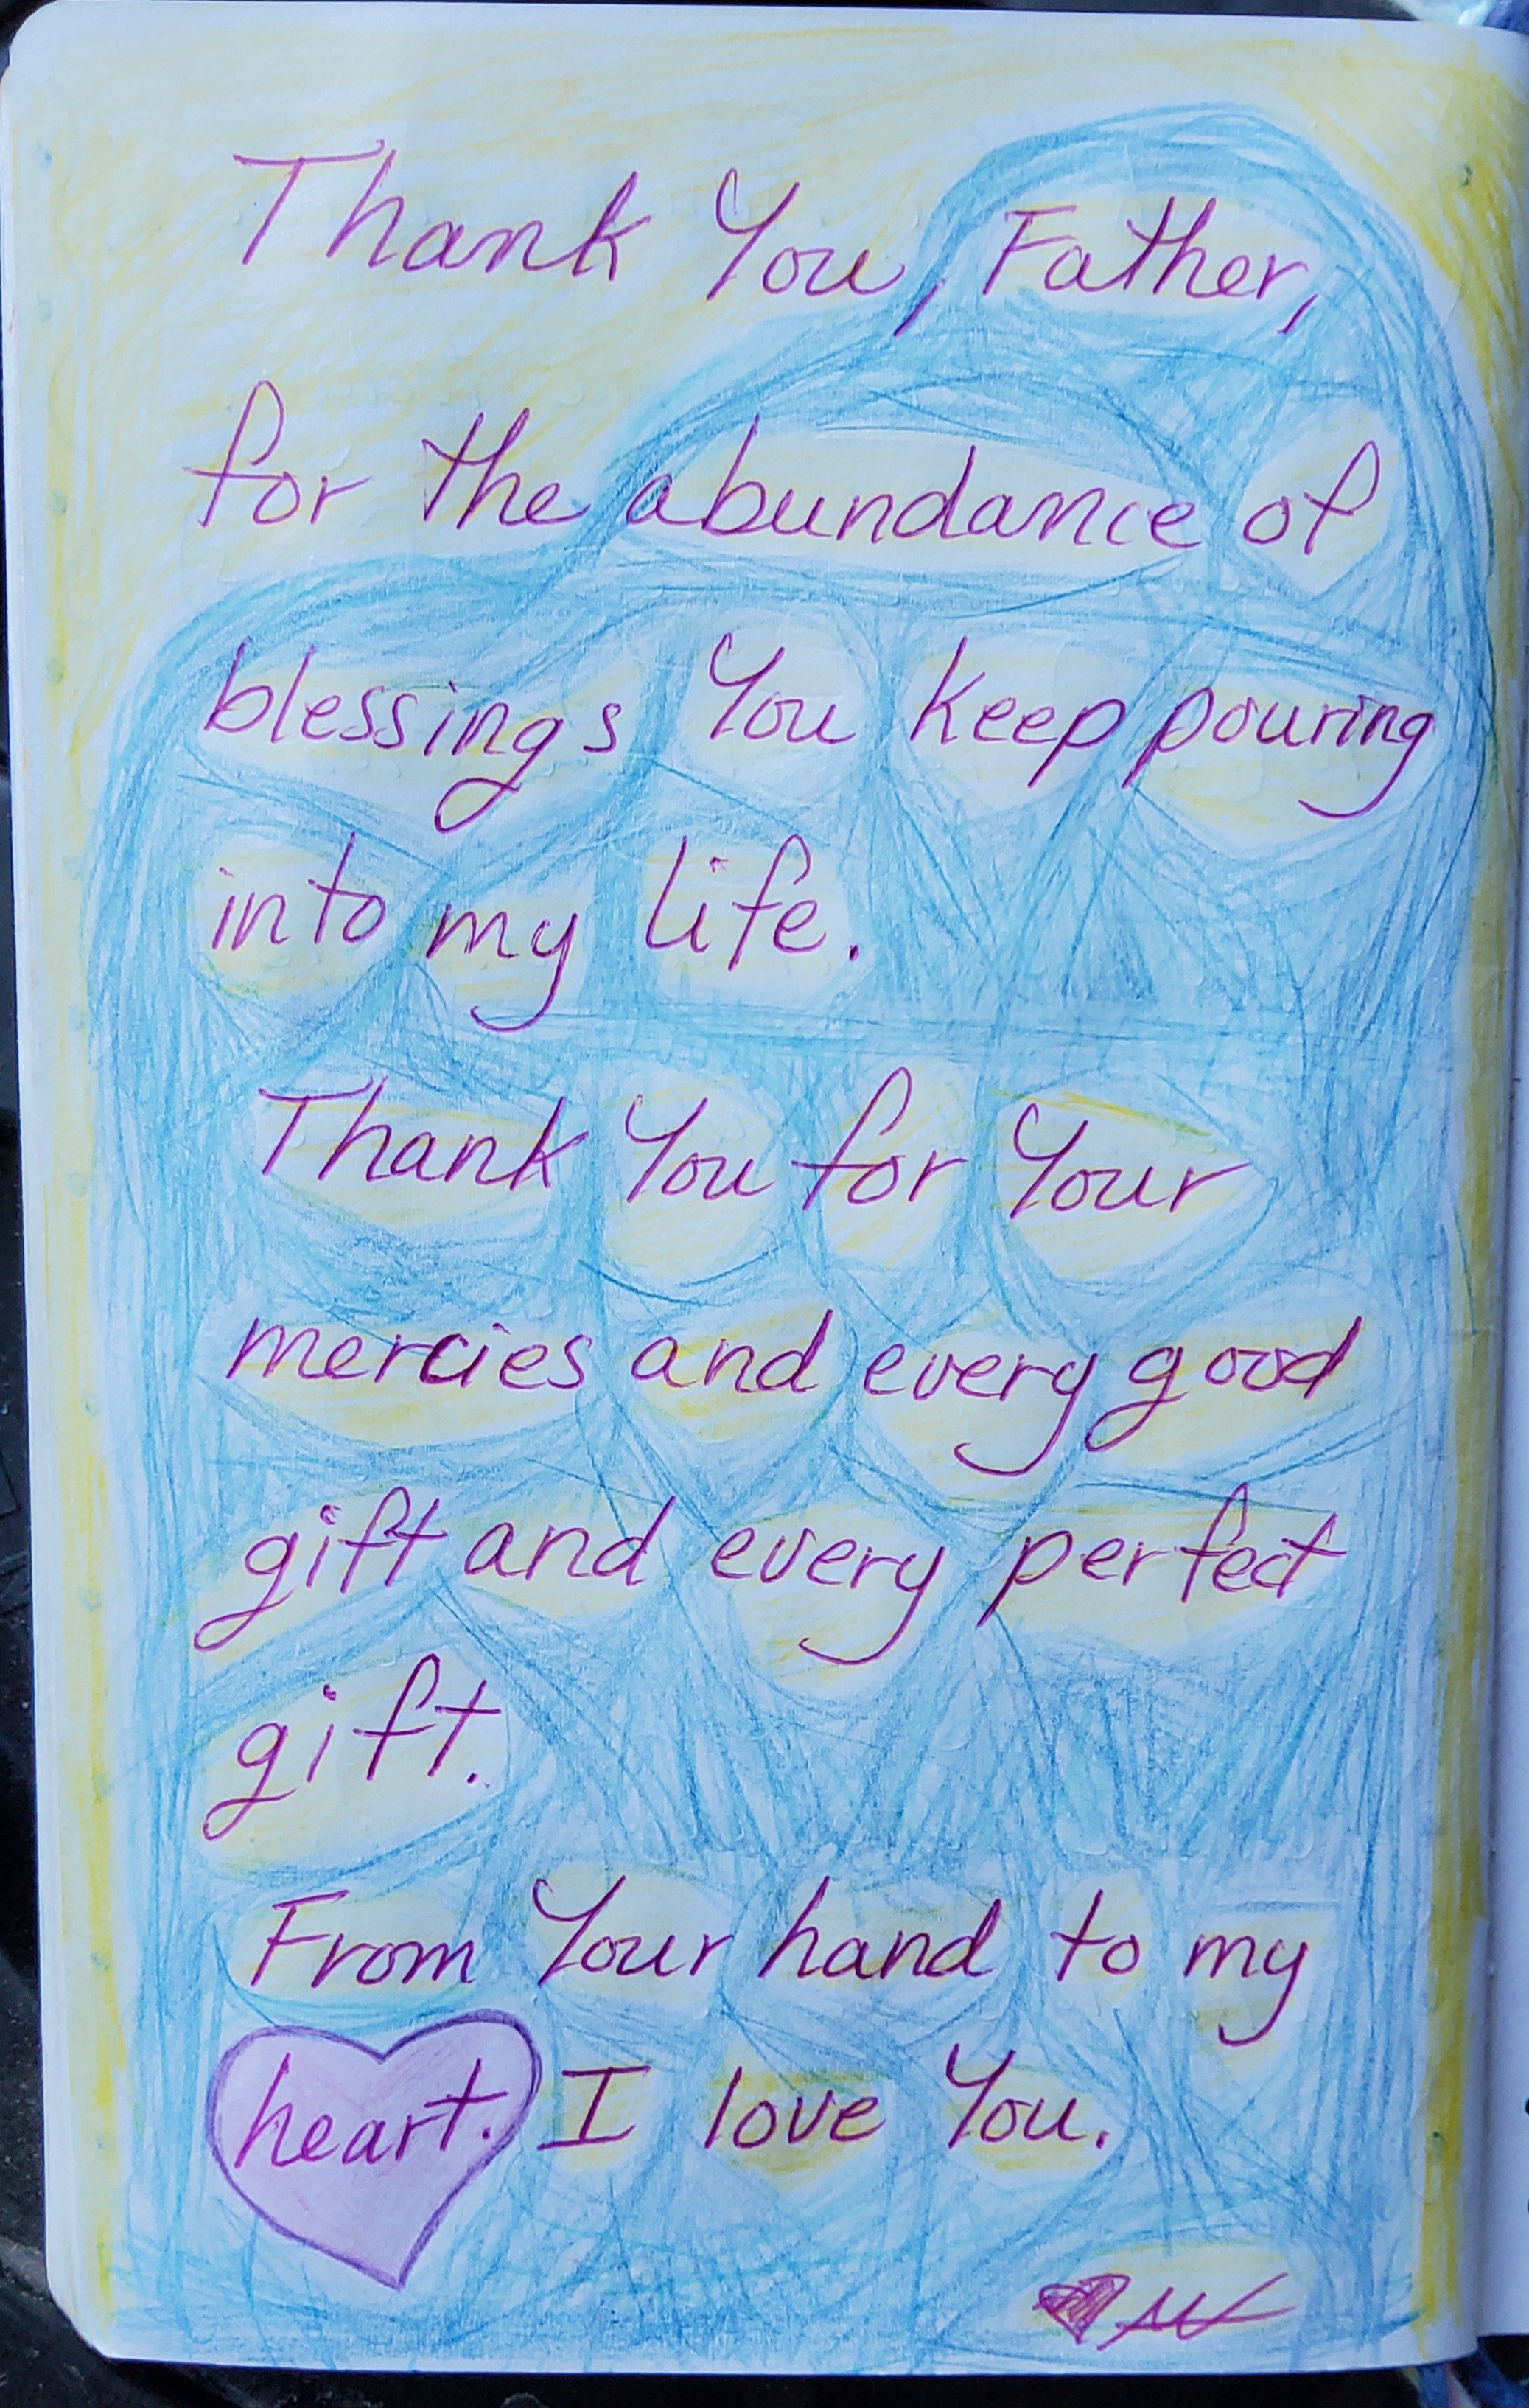 Thank You, Father,
for the abundance of
blessings You keep pouring
into my life.
Thank You for Your
mercies and every good
gift and every perfect
gift.
From Your hand to my
heart. I love You.